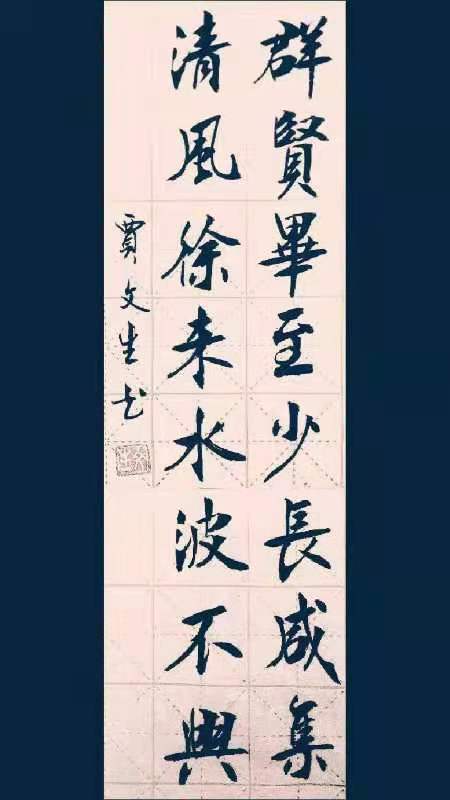 群賢畢至少長咸集
清風徐来水波不興
賈文生书